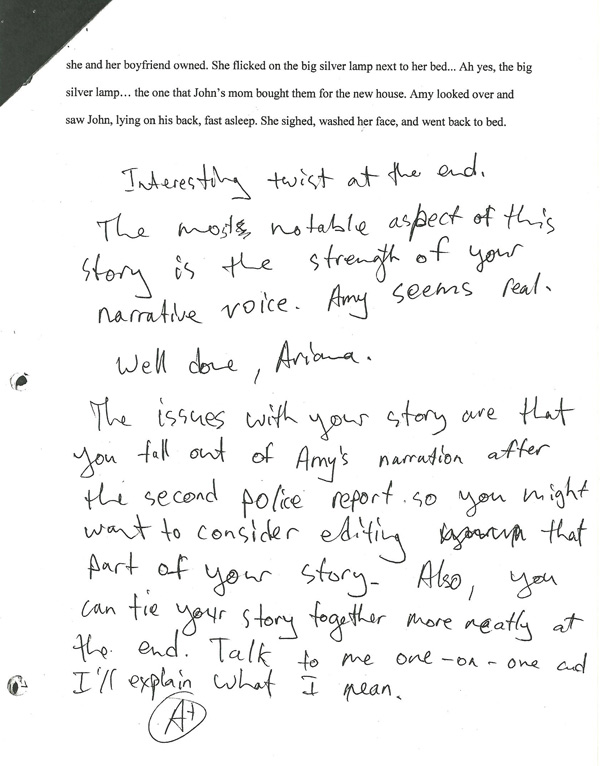 she and her boyfriend owned. She flicked on the big silver lamp next to her bed... Ah yes, the big
silver lamp… the one that John's mom bought them for the new house. Amy looked over and
saw John, lying on his back, fast asleep. She sighed, washed her face, and went back to bed.
Interesting twist at the end.
The most notable aspect of this
story is the strength of your
narrative voice. Amy seems real.
Well done, Ariana.
The issues with your story are that
you fall out of Amy's narration after
the second police report. so you might
want to consider editing that
part of your story. Also, you
can tie your story together more neatly at
the end. Talk to me one-on-one and
I'll explain what I mean.
A+